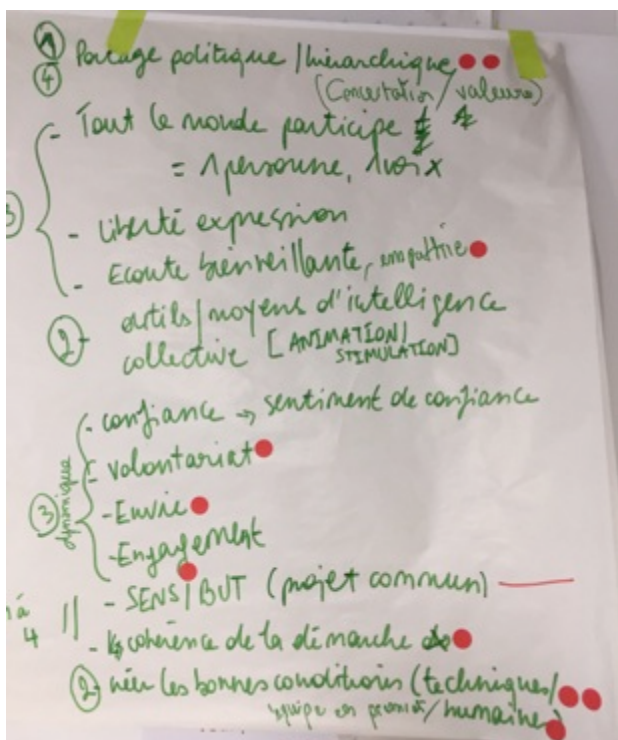 1 Portage politique / hiérarchique
4 (Concertation / valeurs)
- Tout le monde participe
= 1 personne, 1 voix
- liberté expression
- Ecoute bienveillante, empathie
2 outils / moyens d'intelligence
collective [ANIMATION /
STIMULATION]
- confiance → sentiment de confiance
- volontariat
3 dynamique
- Envie
- Engagement
- SENS / BUT (projet commun)
4 - cohérence de la démarche
2 créer les bonnes conditions (techniques /
équipe en / humaines)